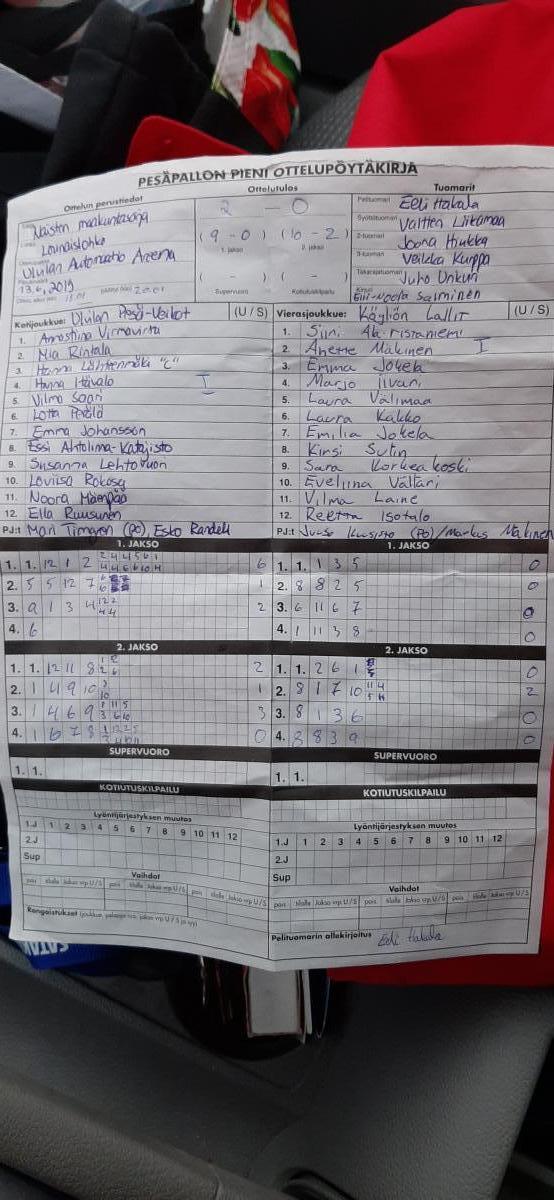 PESÄPALLON PIENI OTTELUPÖYTÄKIRJA
Ottelun perustiedot
Ottelutulos
Tuomarit
Naisten maakuntasarja
Lounaislohko
Ulvilan Automaatio Areena
13.6.2019
20.01
2 0
( 9 - 0 ) ( 6 - 2 )
1. jakso 2. jakso
( - ) ( - )
Supervuoro Kotiutuskilpailu
Pelituomari Eeli Hakala
Syöttötuomari Valtteri Liikamaa
2-tuomari Joona Hiukka
3-tuomari Veikka Kurppa
Takarajatuomari Juho Unkuri
Kirjuri Eili-Noora Salminen
Kotijoukkue: Ulvilan Pesä-Veikot (U / S)
1. Annastiina Virmavirta
2. Mia Rintala
3. Hanna Lähteenmäki "C"
4. Hanna Itävalo I
5. Vilma Saari
6. Lotta Perälä
7. Emma Johansson
8. Essi Ahtolima-Katajisto
9. Susanna Lehtovuori
10. Loviisa Rokosa
11. Noora Mäenpää
12. Ella Ruusunen
PJ:t Mari Timgren (PO) Esko Randell
Vierasjoukkue: Köyliön Lallit (U / S)
1. Siini Ala-ristaniemi
2. Anette Mäkinen I
3. Emma Jokela
4. Marjo Iivari
5. Laura Välimaa
6. Laura Kakko
7. Emilia Jokela
8. Kirsi Sutin
9. Sara Korkeakoski
10. Eveliina Valtari
11. Vilma Laine
12. Reetta Isotalo
PJ:t (PO) / Markus Mäkinen
1. JAKSO
1. 1. 12 1 2 6
2. 5 5 12 7 1
3. 9 1 3 4 2
4. 6
1. JAKSO
1. 1. 1 3 5 0
2. 8 8 2 5 0
3. 6 11 6 7 0
4. 1 11 3 8 0
2. JAKSO
1. 1. 12 11 8 2
2. 1 4 9 10 1
3. 1 4 6 9 3
4. 1 6 7 8 0
2. JAKSO
1. 1. 2 6 1 0
2. 8 1 7 10 2
3. 8 1 3 6 0
4. 8 8 3 9 0
SUPERVUORO
1. 1.
SUPERVUORO
1. 1.
KOTIUTUSKILPAILU
KOTIUTUSKILPAILU
Lyöntijärjestyksen muutos
1.J 1 2 3 4 5 6 7 8 9 10 11 12
2.J
Sup
Vaihdot
pois tilalle Jakso vrp U / S pois tilalle Jakso vrp U / S pois tilalle Jakso vrp U / S
Rangaistukset
Lyöntijärjestyksen muutos
1.J 1 2 3 4 5 6 7 8 9 10 11 12
2.J
Sup
Vaihdot
pois tilalle Jakso vrp U / S pois tilalle Jakso vrp U / S pois tilalle Jakso vrp U / S
Pelituomarin allekirjoitus Eeli Hakala